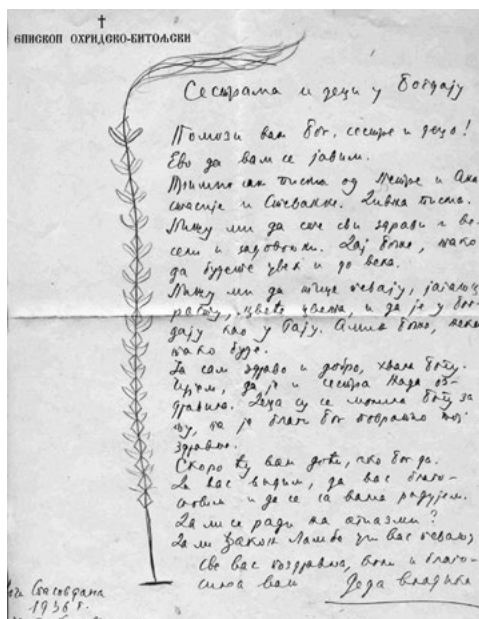 ЕПИСКОП ОХРИДСКО-БИТОЉСКИ
Сестрама и деци у Богдају
Помози вам Бог, сестре и децо!
Ево да вам се јавим.
Примио сам писма од Петре и Ана
стасије и Стеванке. Дивна писма.
Пишу ми да сте сви здрави и ве
сели и задовољни. Дај Боже, тако
да будете увек и до века.
Пишу ми да птице певају, јагањц
цвеће цвета, и да је у Бог
дају као у Рају. Амин Боже, нека
тако буде.
Ја сам здраво и добро, хвала Богу.
Чујем, да је и сестра Нада оз-
дравила. Деца су се молила Богу за
њу, па је благи Бог повратио јој
здравље.
Скоро ћу вам доћи, ако Бог да.
Да вас видим, да вас благо-
словим и да се са вама радујем.
Да ли се ради на
Да ли ђакон Ламбо учи вас певању
Све вас поздравља, воли и благо-
сиља вам Деда Владика
Спасовдана
1936 г.